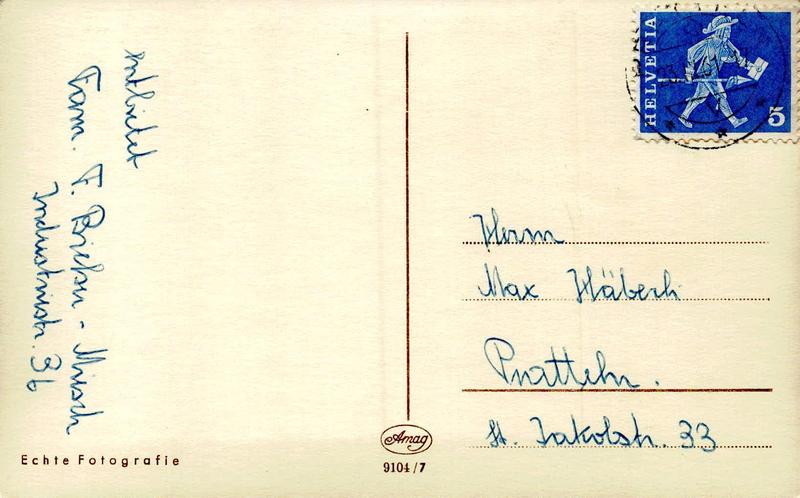 entbietet
Fam. F. Bieser - Miesch
Industriestr. 36
Echte Fotografie
Amag
9104/7
HELVETIA
5
Herrn
Max Häberli
Pratteln.
St. Jakobstr. 33